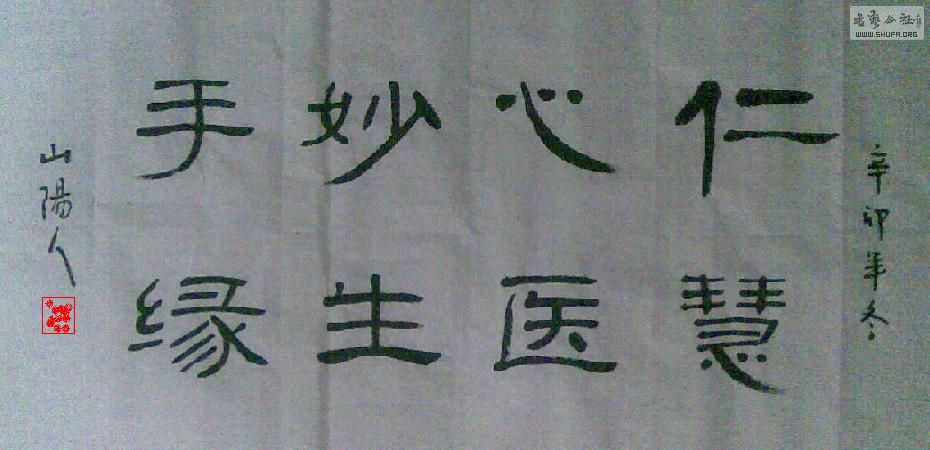 辛卯年冬
仁心妙手
慧医生缘
山陽人
書藝公社
WWW.SHUFA.ORG